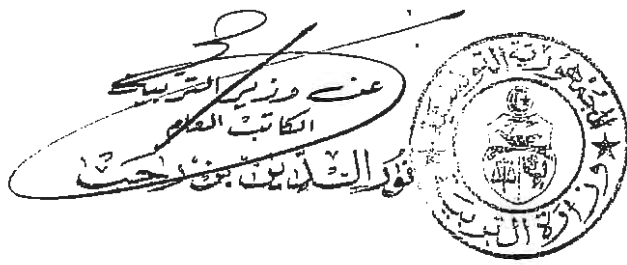 عن وزير التربية
الكاتب العام
نور الدين بن
الجمهورية التونسية
وزارة التربية